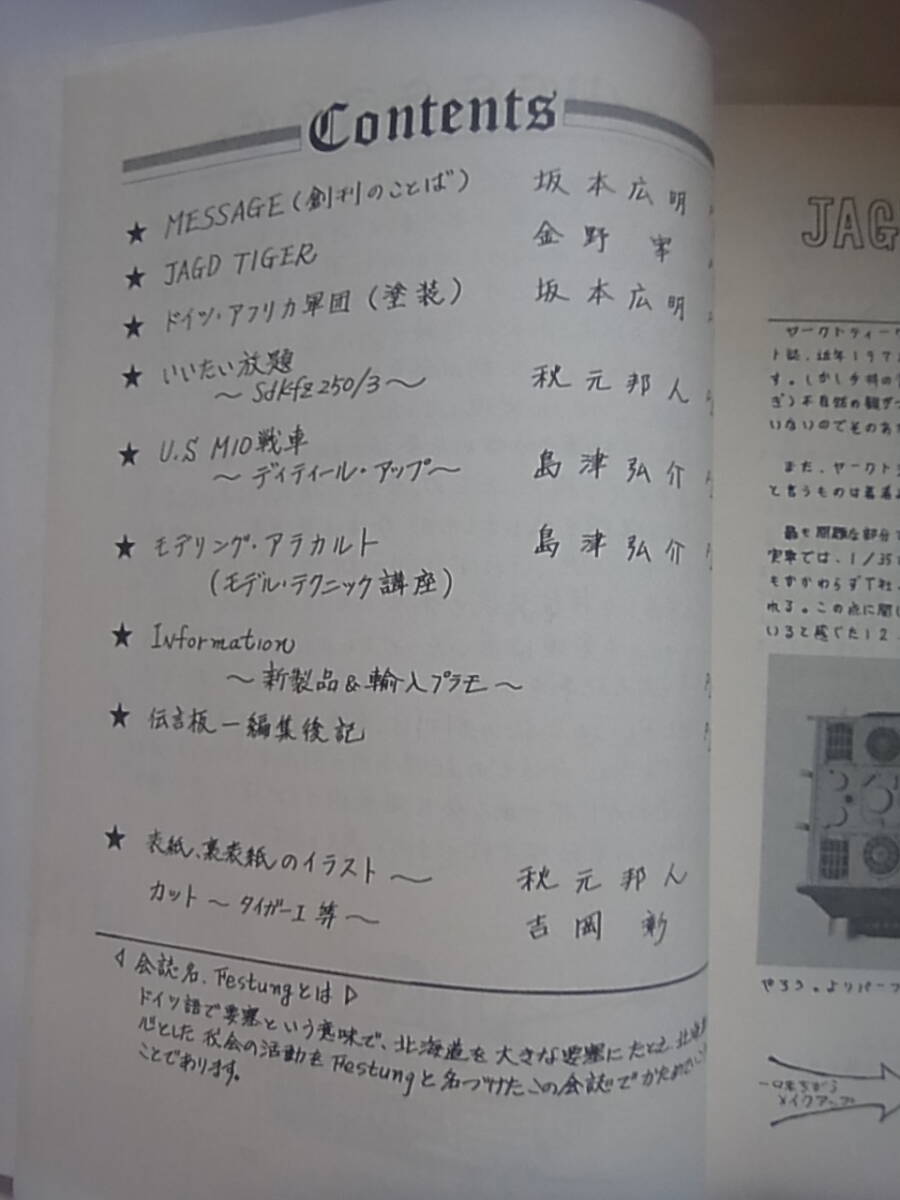 Contents
★ MESSAGE(創刊のことば) 坂本広明
★ JAGD TIGER 金野
★ ドイツ・アフリカ軍団(塗装) 坂本広明
★ いいたい放題
～Sdkfz250/3～ 秋元邦人
★ U.S M10戦車
～ディティール・アップ～ 島津弘介
★ モデリング・アラカルト 島津弘介
(モデル・テクニック講座)
★ Information
～新製品&輸入プラモ～
★ 伝言板―編集後記
★ 表紙、裏表紙のイラスト～ 秋元邦人
カット～タイガーI等～ 吉岡彰
◁会誌名、Festungとは▷
ドイツ語で要塞という意味で、北海道を大きな要塞にたとえ北海
心とした我会の活動をFestungと名づけたこの会誌でかためていこう
ことであります。
JAG
ヤークトティーク
ト誌、近年197
す。しかし今科の
ぎ)不自然の観が
いないのでそのあた
また、ヤークト
と言うものは
最も問題な部分で
実車では、1/35
もかかわらずT社
れる。この点に関し
いると感じた12.
やろう。よりパーフ
メイクアップ